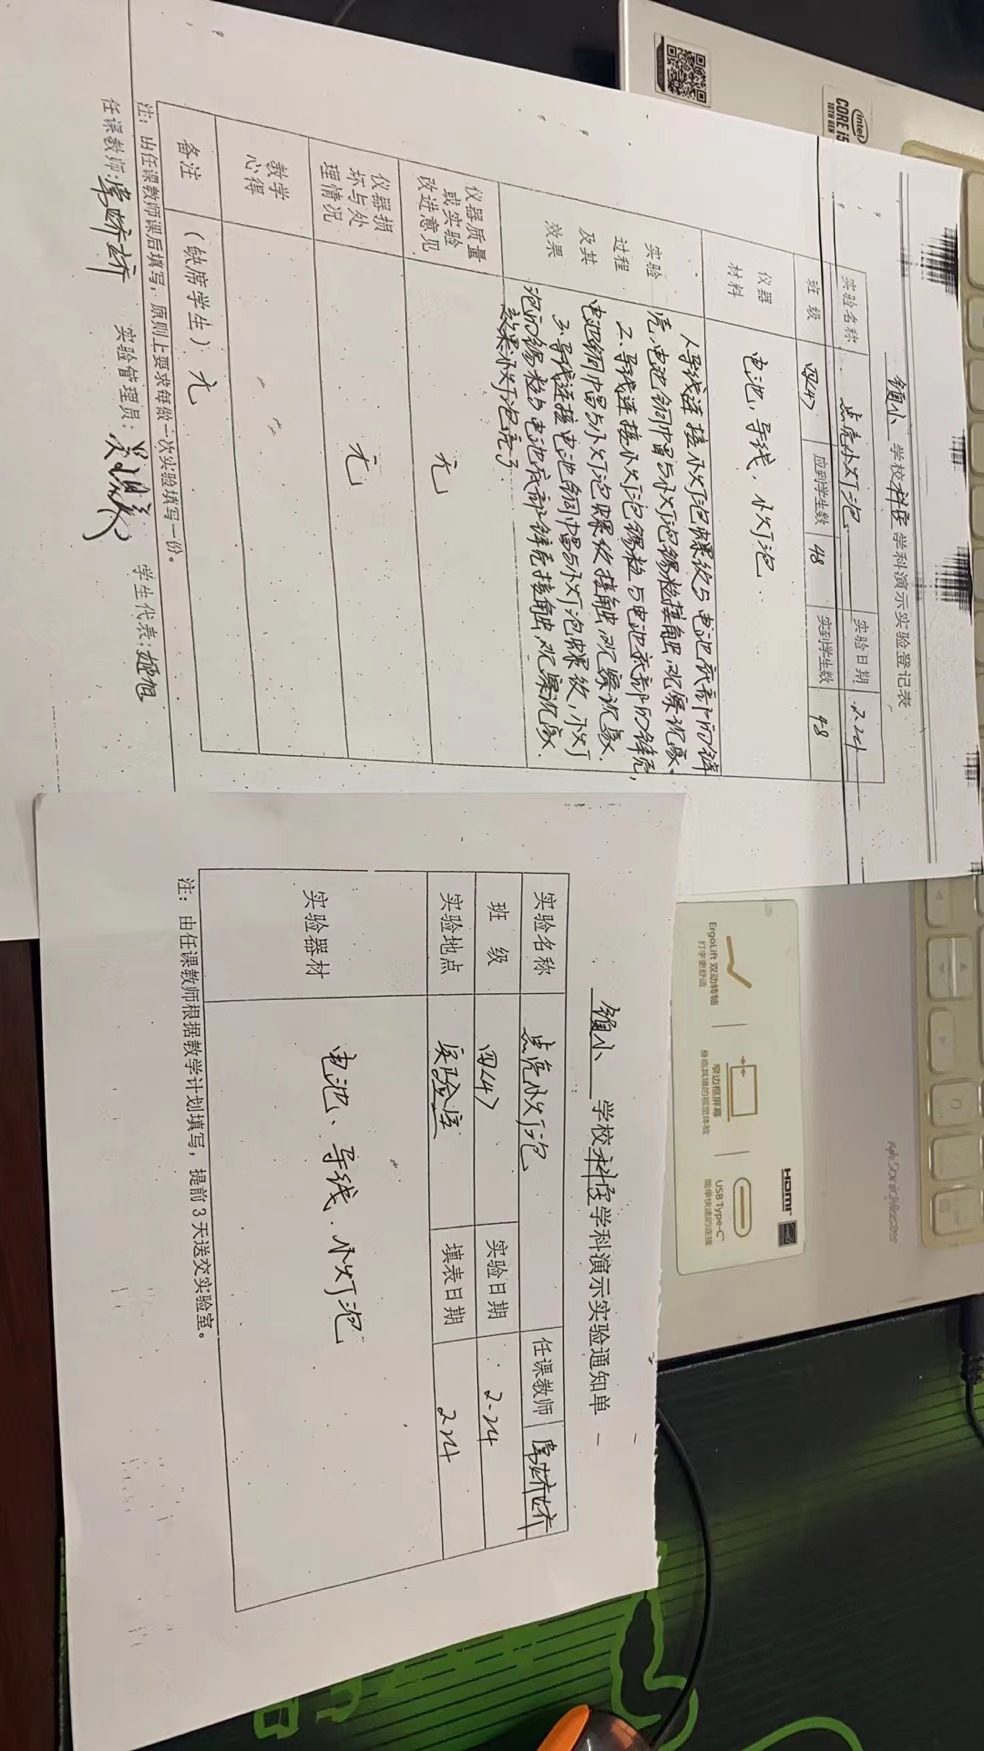 镇小 学校科学学科演示实验登记表
实验名称 点亮小灯泡 实验日期 2.24
班 级 四(4) 应到学生数 48 实到学生数 48
仪器材料 电池、导线、小灯泡
实验过程及其效果
1.导线连接小灯泡螺纹与电池底部的锌
壳,电池铜帽与小灯泡锡粒接触,观察现象.
2.导线连接小灯泡锡粒与电池底部的锌壳,
电池铜帽与小灯泡螺纹接触,观察现象.
3.导线连接电池铜帽与小灯泡螺纹,小灯
泡的锡粒与电池底部锌壳接触,观察现象.
效果小灯泡亮了.
仪器质量或实验改进意见 无
仪器损坏与处理情况 无
教学心得
备注 (缺席学生) 无
注:由任课教师课后填写,原则上要求每做一次实验填写一份。
任课教师: 实验管理员: 学生代表:
镇小 学校科学学科演示实验通知单
实验名称 点亮小灯泡 任课教师
班 级 四(4) 实验日期 2.24
实验地点 实验室 填表日期 2.24
实验器材 电池、导线、小灯泡
注:由任课教师根据教学计划填写,提前3天送交实验室。
intel
CORE i5
10TH GEN
ErgoLift 双动转轴
打字更舒适
窄边框屏幕
身临其境的视觉体验
USB Type-C
简单快速的连接
HDMI